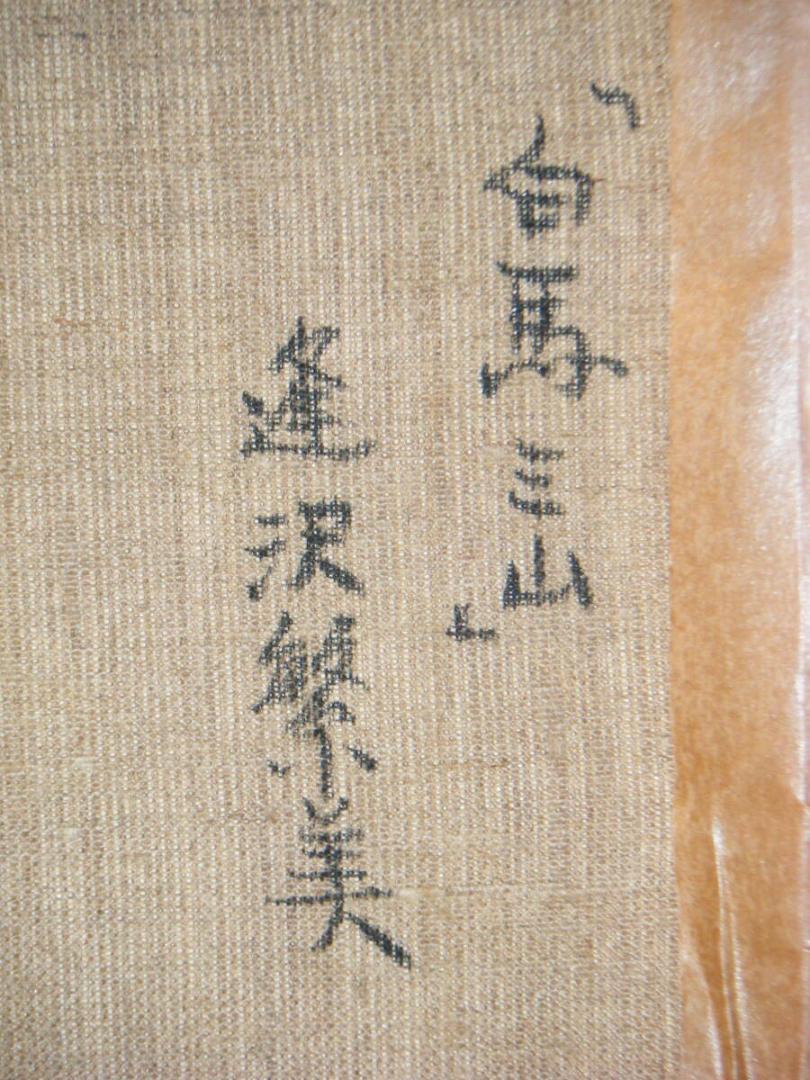 「白馬三山」
逢沢繁美